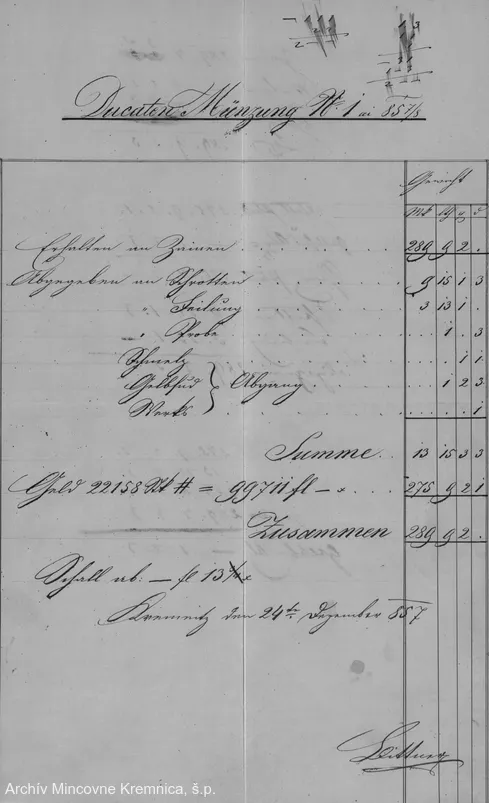 Ducaten Münzung № 1 ai 857/8
Gewicht
Mk lg q d
Erhalten an Zainen . . . 289 9 2 .
Abgegeben an Schrotten . . . 9 15 1 3
" Feilung . . . 3 13 1 .
" Probe . . . . 1 . 3
Schmelz . . . . . 1 1
Geldsud } Abgang . . . . 1 2 3
Werks . . . . . . 1
Summe . . 13 15 3 3
Geld 22158 Stk # = 99711 fl – x . . . 275 9 2 1
Zusammen 289 9 2 .
Schall ab: — fl 13 x
Kremnitz den 24ten Dezember 857
Archív Mincovne Kremnica, š.p.